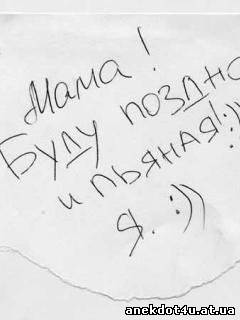 Мама!
Буду поздно
и пьяная!:))
Я. :))
anekdot4u.at.ua